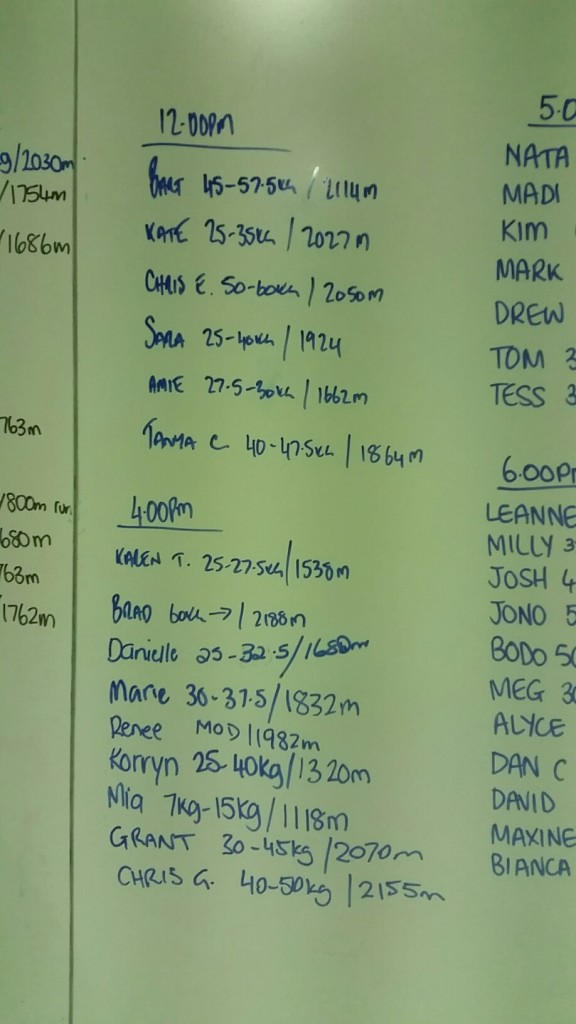 9/2030m
/1754m
/1686m
763m
/800m run
680m
763m
/1762m
12.00pm
BART 45-57.5kg / 2114m
KATE 25-35kg / 2027m
CHRIS E. 50-60kg / 2050m
SARA 25-40kg / 1924
AMIE 27.5-30kg / 1662m
TANYA C 40-47.5kg / 1864m
4.00pm
KAREN T. 25-27.5kg/1538m
BRAD 60kg → / 2188m
Danielle 25-32.5/1680m
Marie 30-37.5/1832m
Renee MOD / 1982m
Korryn 25-40kg/1320m
Mia 7kg-15kg/1118m
GRANT 30-45kg /2070m
CHRIS G. 40-50kg / 2155m
5.0
NATA
MADI
KIM
MARK
DREW
TOM 3
TESS 3
6.00P
LEANNE
MILLY 3
JOSH 4
JONO 5
BODO 50
MEG 30
ALYCE
DAN C
DAVID
MAXINE
BIANCA